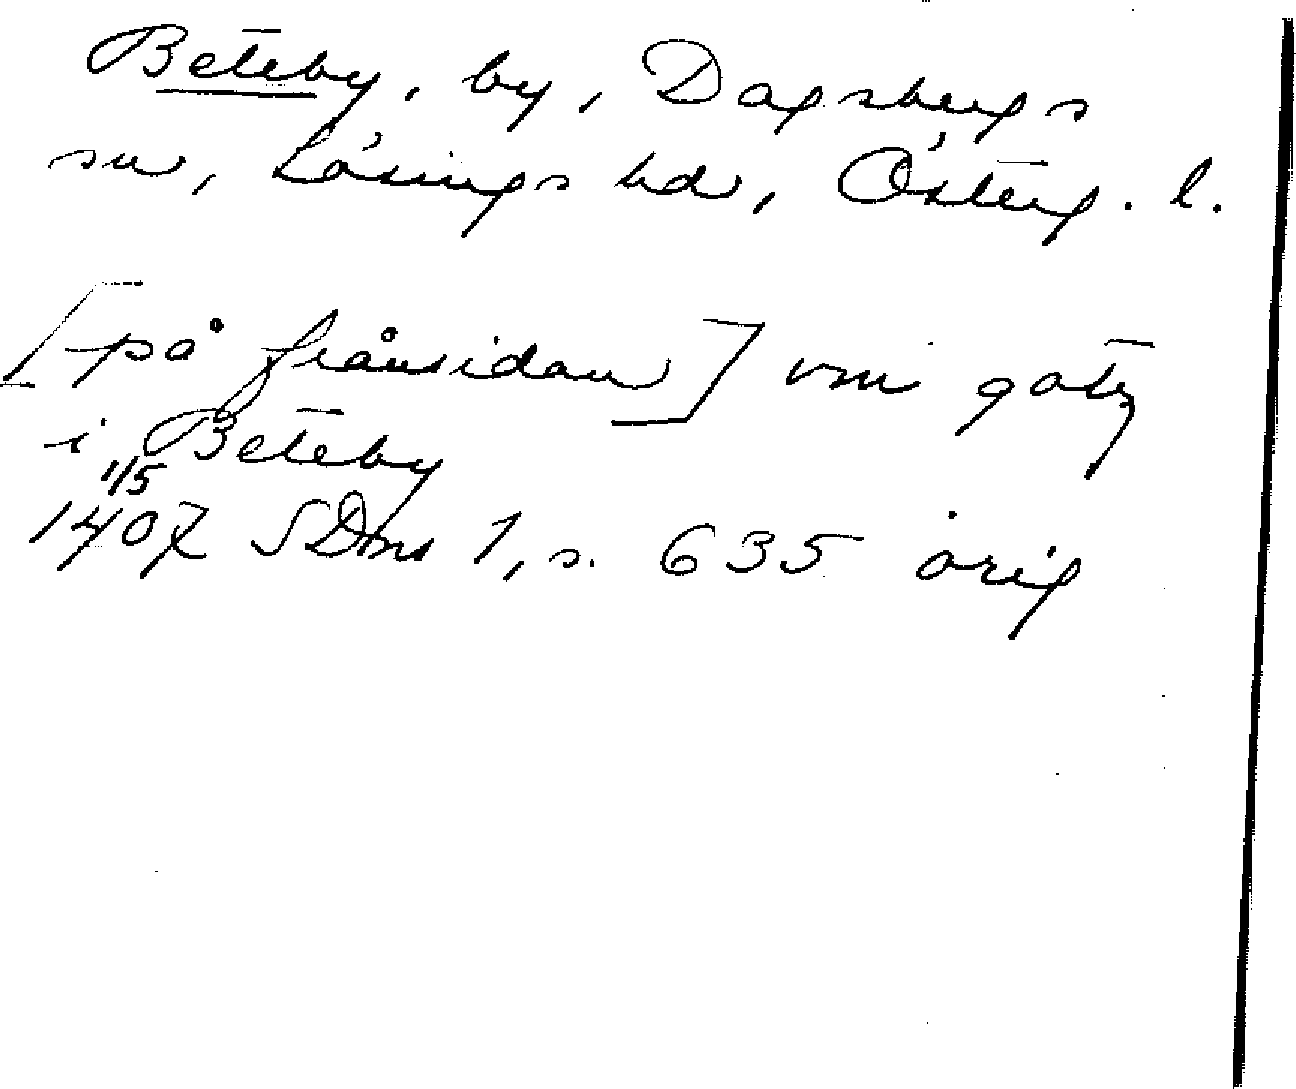 Beteby, by, Dagsbergs
sn, Lösings hd, Österg. l.
[på frånsidan] vm gotz
i Beteby
1/5
1407 SDns 1, s. 635 orig